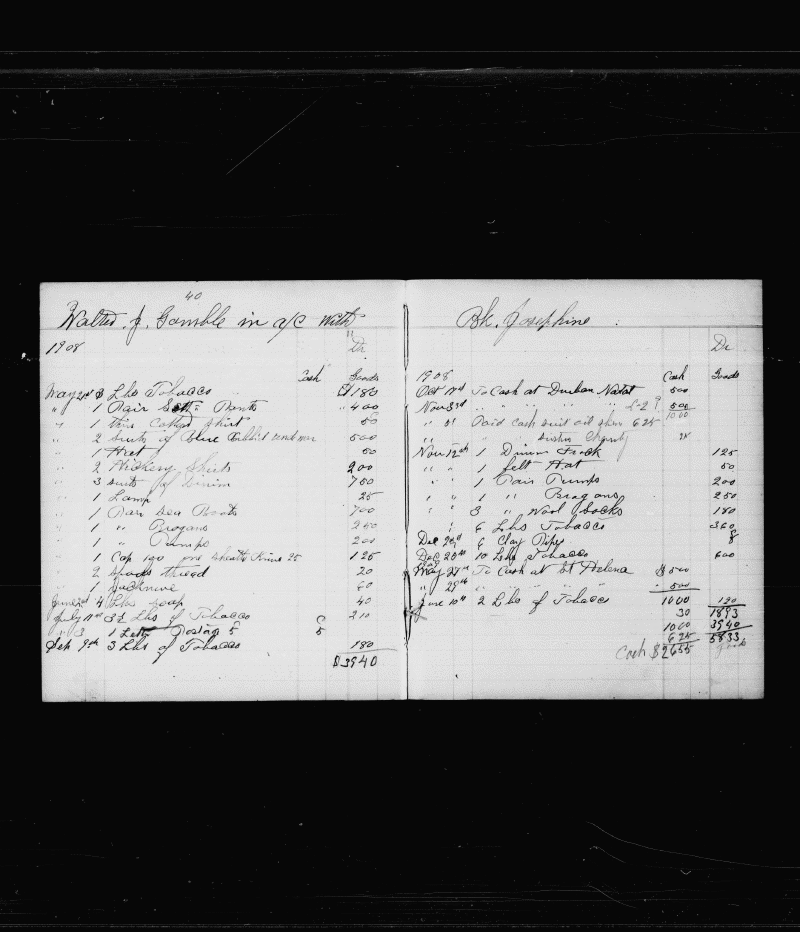 40
Walter. J. Gamble in a/c with
1908
Dr
Cash Goods
May 21st 3 Lbs Tobacco $180
" 1 Pair Pants " 400
" 1 Thin Cotton Shirt 50
" 2 suits of blue 500
" 1 Hat 50
" 2 Hickory Shirts 200
" 3 suits of Denim 750
" 1 Lamp 25
" 1 Pair Sea Boots 700
" 1 " Brogans 250
" 1 " Pumps 200
" 1 Cap 100 one Sheath Knife 25 125
" 2 Spools thread 20
" 1 Jacknive 60
June 2nd 4 Lbs soap 40
July 11st 3½ Lbs of Tobacco 210
" 3 1 Letter Postage 5 5
Sep 9th 3 Lbs of Tobacco 180
$3940
Bk. Josephine
Dr
1908 Cash Goods
Oct 17th To Cash at Durban Natal 500
Nov 3rd " " " " " 500
1000
" " Paid cash suit oil 625
25
Nov 12th 1 Dinim Frock 125
" " 1 felt Hat 50
" " 1 Pair Pumps 200
" " 1 " Brogans 250
" " 3 " Wool Socks 180
" 6 Lbs Tobacco 360
Dec 6 Clay Pipes 8
Dec 20th 10 Lbs Tobacco 600
May 27th To Cash at St Helena $500
" 29th " " " " " 500
June 10th 2 Lbs of Tobacco 1000 120
30 1893
1000 3940
625 5833
Cash $2655 goods